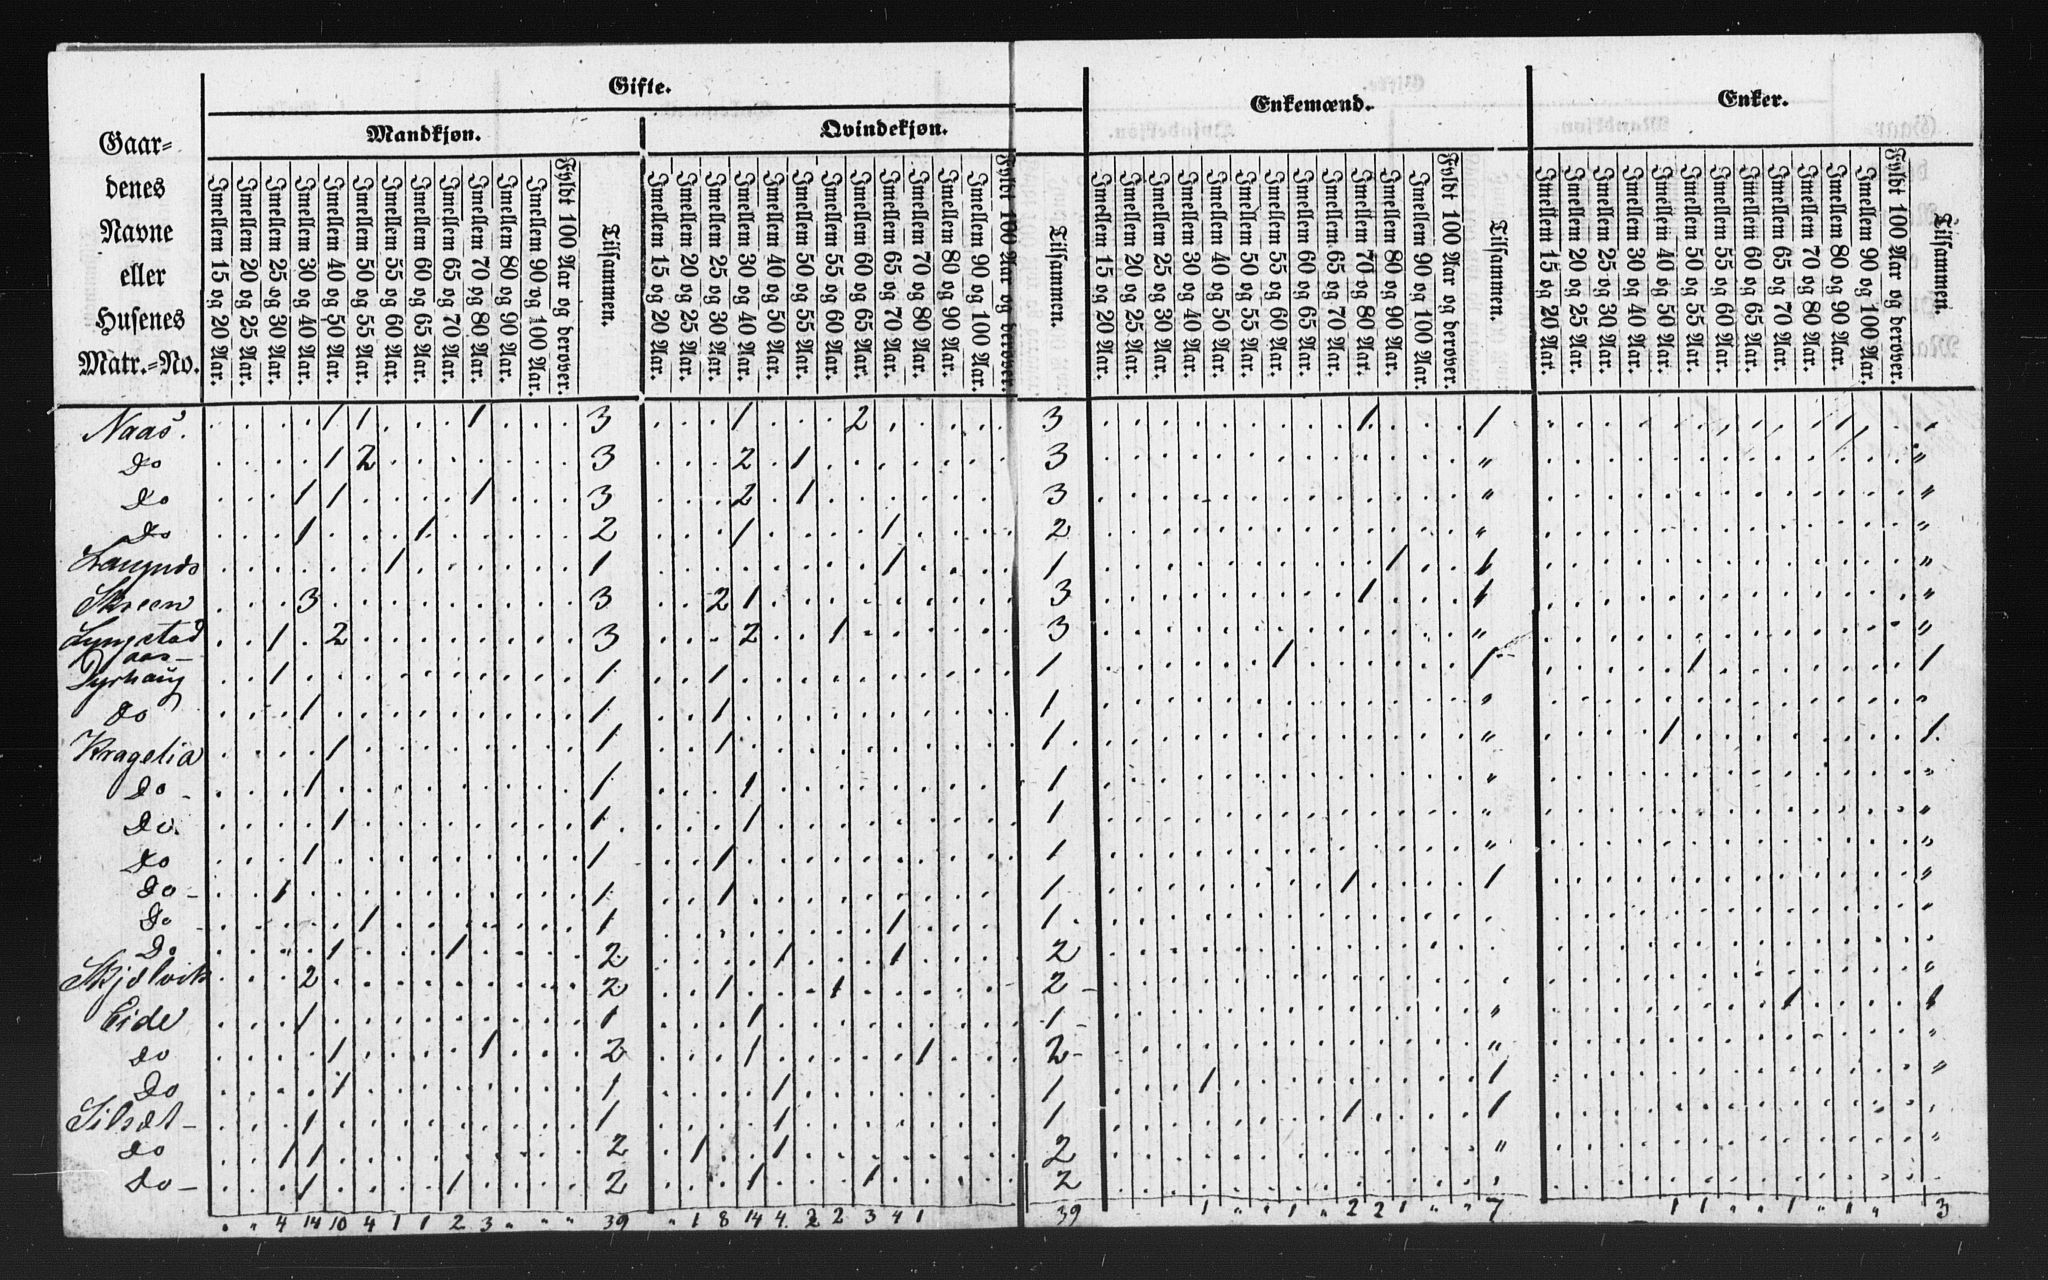 Gifte.
Enkemænd.
Enker.
Mandkjøn.
Qvindekjøn.
Gaar-
denes
Navne
eller
Husenes
Matr.-No.
Imellem 15 og 20 Aar.
Imellem 20 og 25 Aar.
Imellem 25 og 30 Aar.
Imellem 30 og 40 Aar.
Imellem 40 og 50 Aar.
Imellem 50 og 55 Aar.
Imellem 55 og 60 Aar.
Imellem 60 og 65 Aar.
Imellem 65 og 70 Aar.
Imellem 70 og 80 Aar.
Imellem 80 og 90 Aar.
Imellem 90 og 100 Aar.
Fyldt 100 Aar og derover.
Tilsammen.
Imellem 15 og 20 Aar.
Imellem 20 og 25 Aar.
Imellem 25 og 30 Aar.
Imellem 30 og 40 Aar.
Imellem 40 og 50 Aar.
Imellem 50 og 55 Aar.
Imellem 55 og 60 Aar.
Imellem 60 og 65 Aar.
Imellem 65 og 70 Aar.
Imellem 70 og 80 Aar.
Imellem 80 og 90 Aar.
Imellem 90 og 100 Aar.
Fyldt 100 Aar og derover.
Tilsammen.
Imellem 15 og 20 Aar.
Imellem 20 og 25 Aar.
Imellem 25 og 30 Aar.
Imellem 30 og 40 Aar.
Imellem 40 og 50 Aar.
Imellem 50 og 55 Aar.
Imellem 55 og 60 Aar.
Imellem 60 og 65 Aar.
Imellem 65 og 70 Aar.
Imellem 70 og 80 Aar.
Imellem 80 og 90 Aar.
Imellem 90 og 100 Aar.
Fyldt 100 Aar og derover.
Tilsammen.
Imellem 15 og 20 Aar.
Imellem 20 og 25 Aar.
Imellem 25 og 30 Aar.
Imellem 30 og 40 Aar.
Imellem 40 og 50 Aar.
Imellem 50 og 55 Aar.
Imellem 55 og 60 Aar.
Imellem 60 og 65 Aar.
Imellem 65 og 70 Aar.
Imellem 70 og 80 Aar.
Imellem 80 og 90 Aar.
Imellem 90 og 100 Aar.
Fyldt 100 Aar og derover.
Tilsammen.
Naas. 1 1 1 3 1 2 3 1 1 1
do 1 2 3 2 1 3 " "
do 1 1 1 3 2 1 3 " "
do 1 1 2 1 1 2 " "
1 1 1 1 1 1 "
Skreen 3 3 2 1 3 1 1 "
Lyngstad 1 2 3 2 1 3 " "
aas-
Dyrhaug 1 1 1 1 1 1 1 1
do 1 1 1 1 " "
Kragelia 1 1 1 1 " 1 1.
do - 1 1 1 1 " "
do. 1 1 1 1 " "
do 1 1 1 1 " "
do - 1 1 1 1 1 1 "
do - 1 1 1 1 "
do 1 1 2 1 1 2 "
Skjølvik 2 2 1 1 2 - "
Eide 1 1 1 1 - " 1 1
do 1 1 2 1 1 2 - " "
do 1 1 1 1 1 1 "
1 1 1 1 1 1 "
do 1 1 2 1 1 2 " "
do - 1 1 2 1 1 2 "
" " 4 14 10 4 1 1 2 3 " " " 39 " 1 8 14 4 2 2 3 4 1 39 1 " " 1 " 2 2 1 " " 7 1 1 " " 1 " 1 " 3